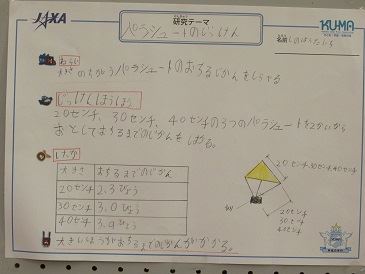 JAXA
研究テーマ
KUMA
パラシュートのじっけん
ねらい
大きさのちがうパラシュートのおちるじかんをしらべる
じっけんほうほう
20センチ、30センチ、40センチの3つのパラシュートを2かいから
おとしておちるまでのじかんをはかる。
けっか
大きさ おちるまでのじかん
20センチ 2.3びょう
30センチ 3.0びょう
40センチ 3.9びょう
20センチ・30センチ・40センチ
20センチ
30センチ
40センチ
大きいほうがおちるまでのじかんがかかる。